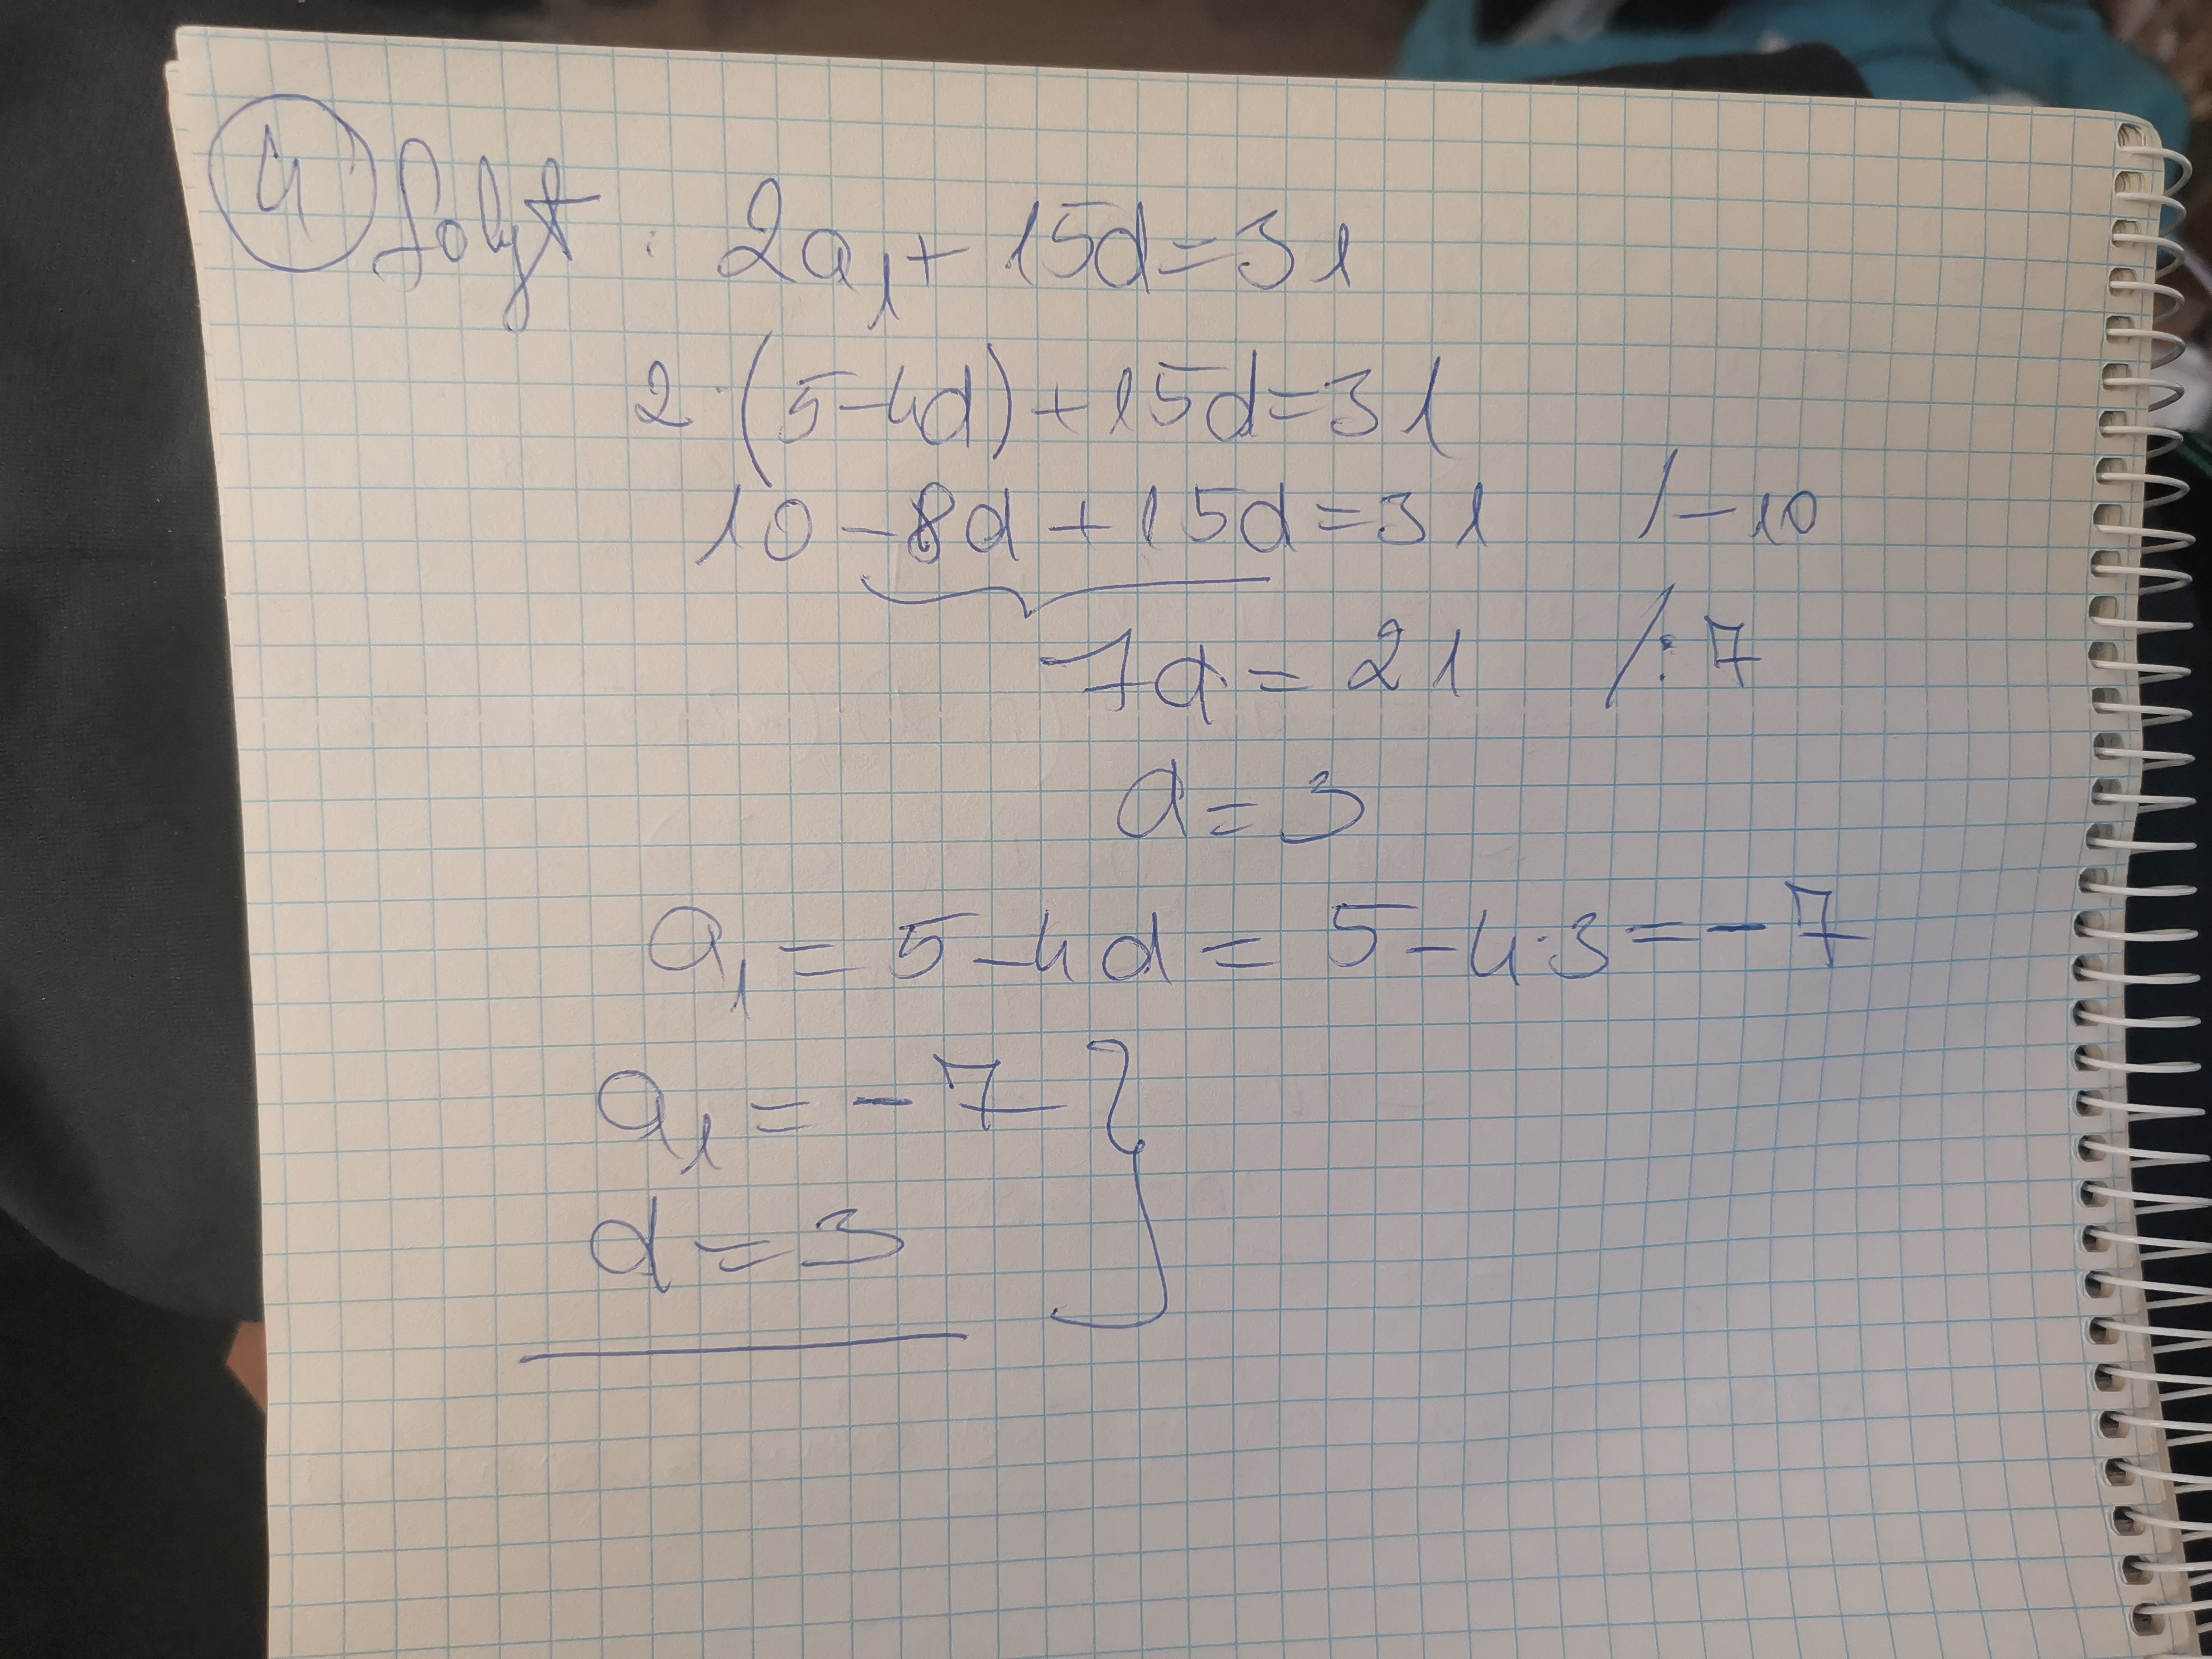 4 folyt: 2a₁ + 15d = 31
2·(5-4d)+15d=31
10-8d+15d=31 /-10
7d = 21 /:7
d = 3
a₁ = 5-4d = 5-4·3 = -7
a₁ = -7
d = 3